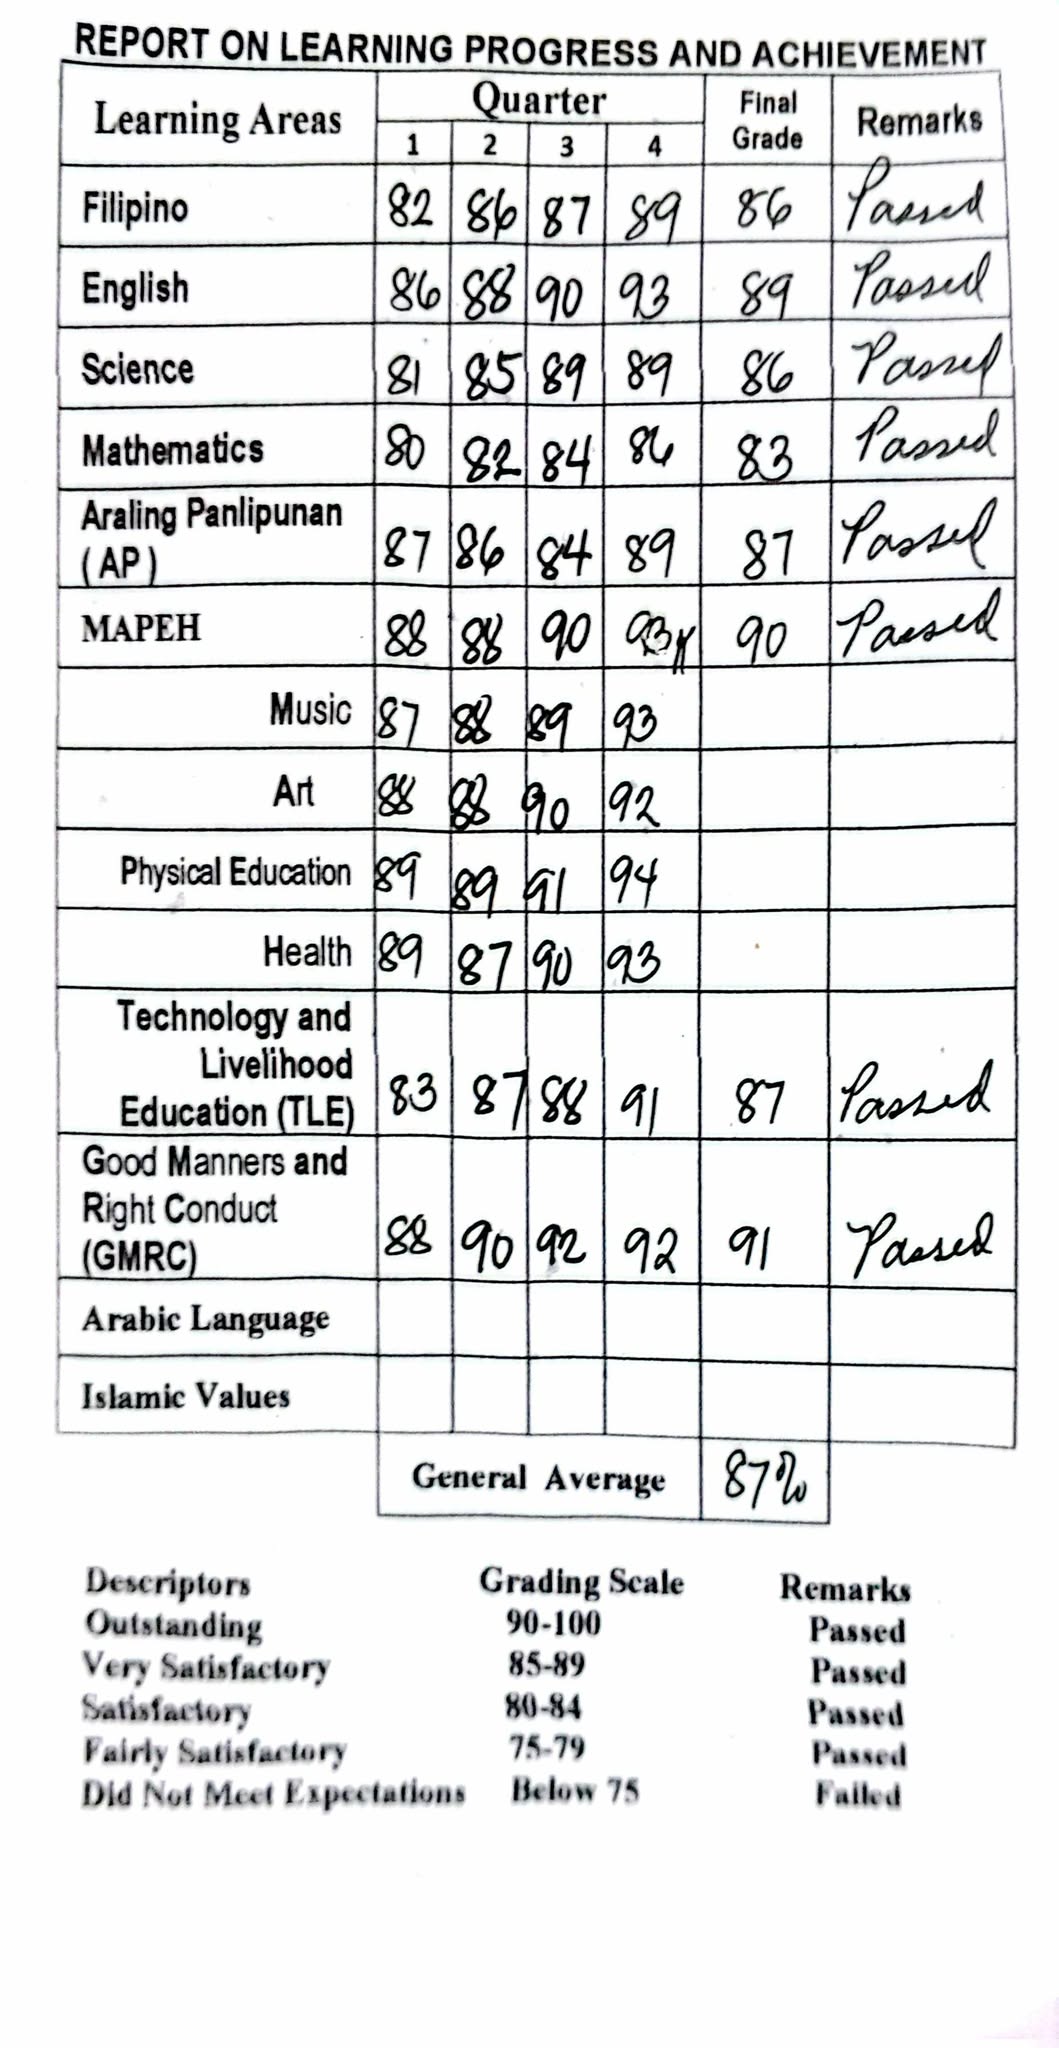 REPORT ON LEARNING PROGRESS AND ACHIEVEMENT
Learning Areas Quarter Final Grade Remarks
1 2 3 4
Filipino 82 86 87 89 86 Passed
English 86 88 90 93 89 Passed
Science 81 85 89 89 86 Passed
Mathematics 80 82 84 86 83 Passed
Araling Panlipunan
(AP) 87 86 84 89 87 Passed
MAPEH 88 88 90 93 90 Passed
Music 87 88 89 93
Art 88 88 90 92
Physical Education 89 89 91 94
Health 89 87 90 93
Technology and
Livelihood
Education (TLE) 83 87 88 91 87 Passed
Good Manners and
Right Conduct
(GMRC) 88 90 92 92 91 Passed
Arabic Language
Islamic Values
General Average 87%
Descriptors Grading Scale Remarks
Outstanding 90-100 Passed
Very Satisfactory 85-89 Passed
Satisfactory 80-84 Passed
Fairly Satisfactory 75-79 Passed
Did Not Meet Expectations Below 75 Failed